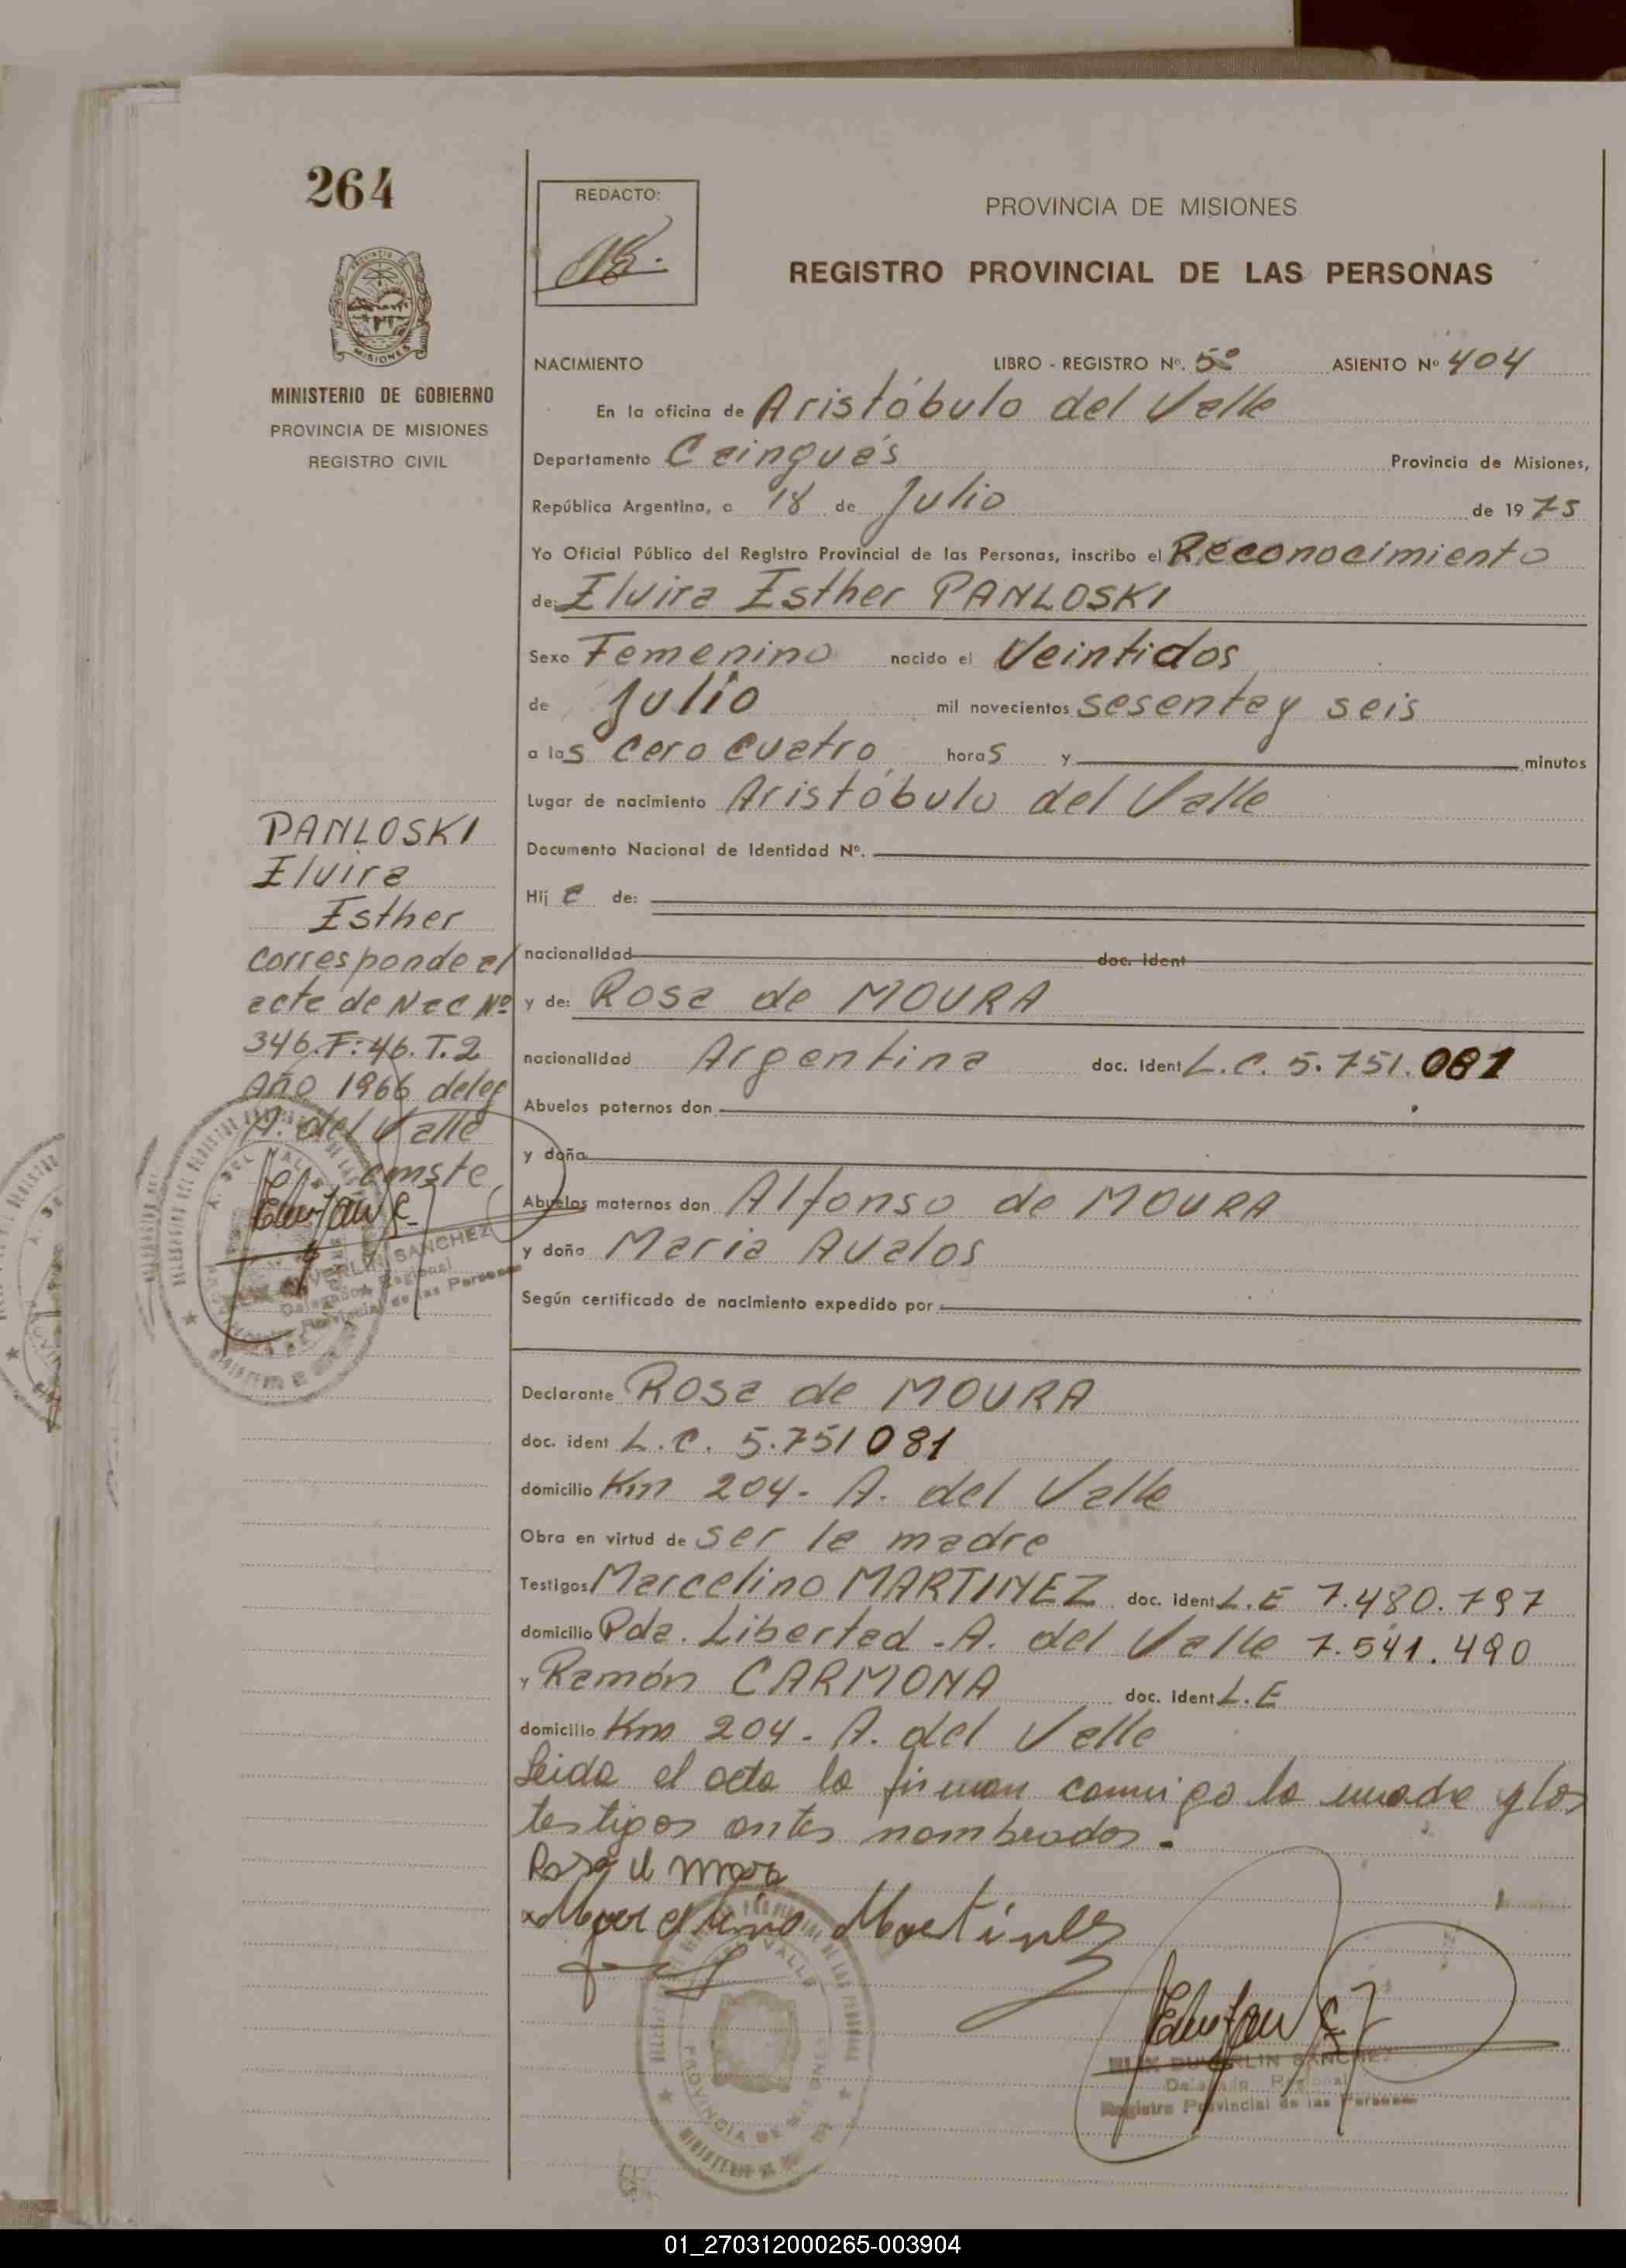 264
REDACTO:
PROVINCIA DE MISIONES
REGISTRO PROVINCIAL DE LAS PERSONAS
MISIONES
MINISTERIO DE GOBIERNO
PROVINCIA DE MISIONES
REGISTRO CIVIL
NACIMIENTO LIBRO - REGISTRO Nº. 5º ASIENTO Nº 404
En la oficina de Aristóbulo del Valle
Departamento Cainguás Provincia de Misiones,
República Argentina, a 18 de Julio de 1975
Yo Oficial Público del Registro Provincial de las Personas, inscribo el Reconocimiento
de: Elvira Esther PANLOSKI
Sexo Femenino nacido el Veintidos
de Julio mil novecientos sesenta y seis
a las cero cuatro horas y minutos
Lugar de nacimiento Aristóbulo del Valle
Documento Nacional de Identidad Nº.
Hij a de:
nacionalidad doc. ident
y de: Rosa de MOURA
nacionalidad Argentina doc. ident L.C. 5.751.081
Abuelos paternos don
y doña
Abuelos maternos don Alfonso de MOURA
y doña Maria Avalos
Según certificado de nacimiento expedido por
PANLOSKI
Elvira
Esther
corresponde al
acta de Nac Nº
346.F:46.T.2
Año 1966 deleg
A. del Valle
conste
DUVERLIN SANCHEZ
Delegado Regional
Provincial de las Personas
Declarante Rosa de MOURA
doc. ident L.C. 5.751081
domicilio Km 204- A. del Valle
Obra en virtud de ser la madre
Testigos Marcelino MARTINEZ doc. ident L.E 7.480.797
domicilio Pda. Libertad - A. del Valle 7.541.490
y Ramón CARMONA doc. ident L.E
domicilio Km 204- A. del Valle
Leida el acta la firman conmigo la madre y los
testigos antes nombrados.
Rosa
Marcelino Martinez
PROVINCIA DE MISIONES
DUVERLIN SANCHEZ
Delegado Regional
Registro Provincial de las Personas
01_270312000265-003904